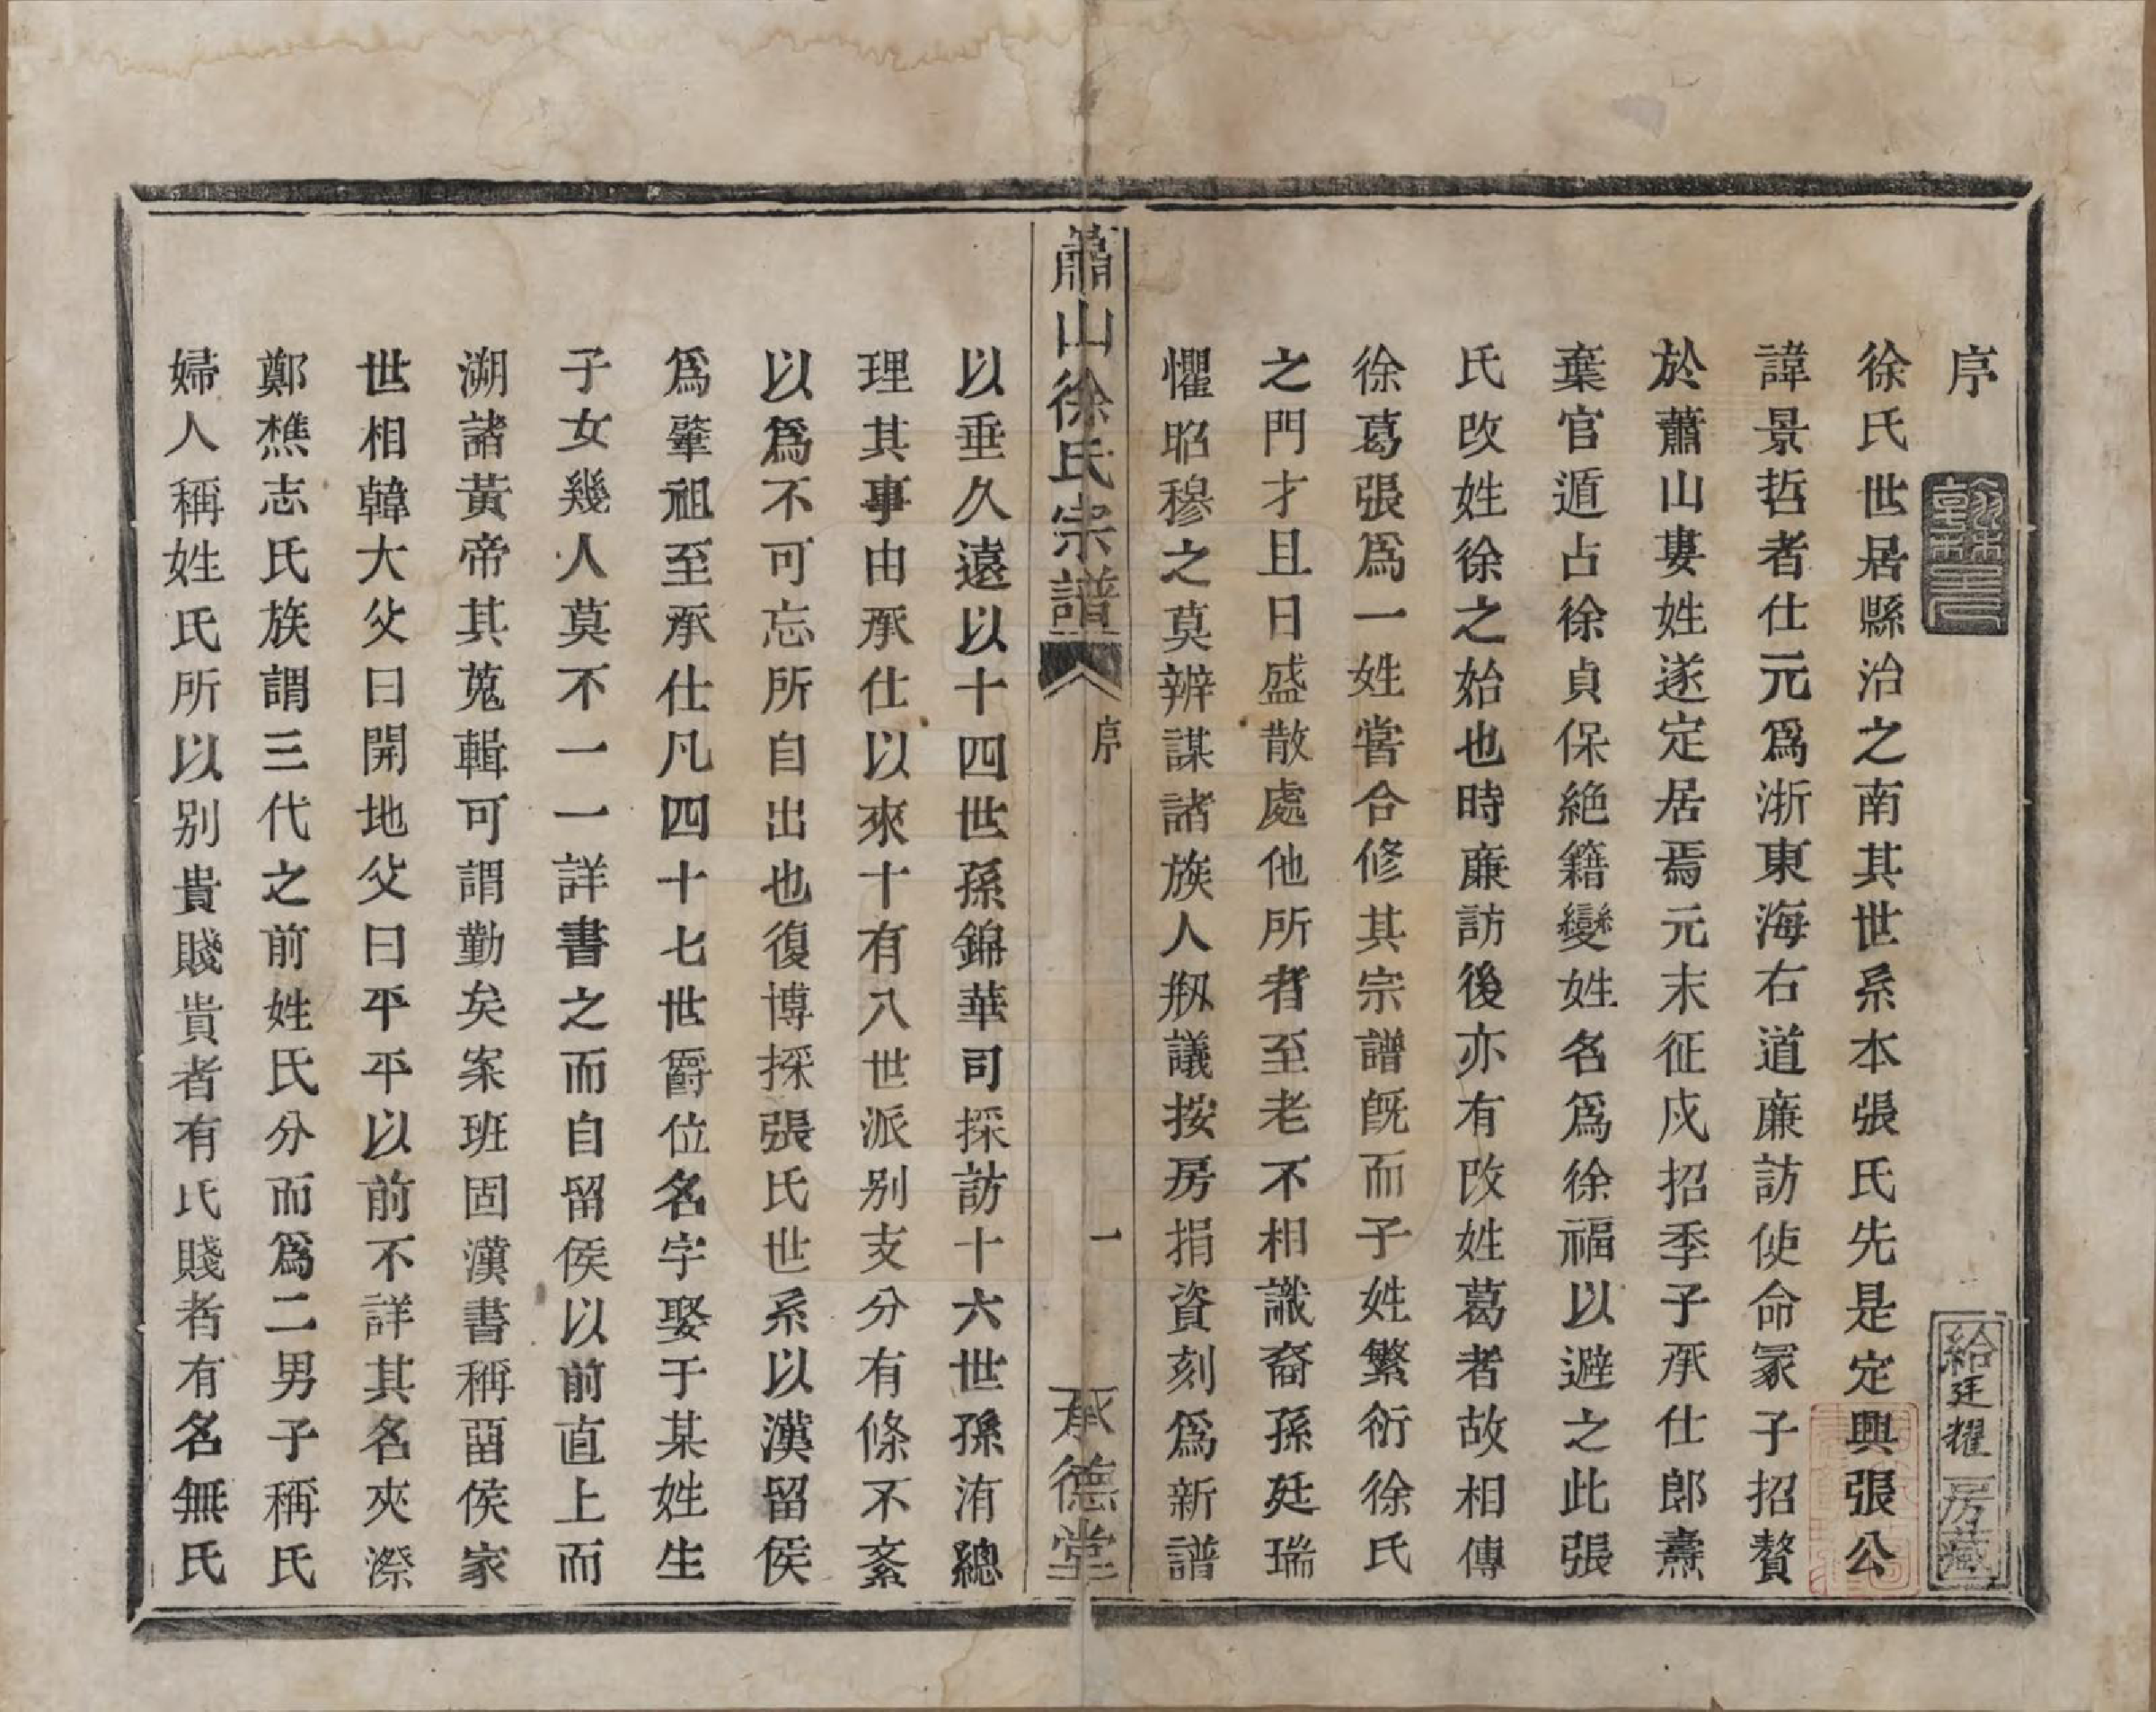 序
給廷耀房藏
徐氏世居縣治之南其世系本張氏先是定興張公
諱景哲者仕元爲浙東海右道廉訪使命冡子招贅
於蕭山婁姓遂定居焉元末征戍招季子承仕郎燾
葉官遁占徐貞保絶籍變姓名爲徐福以避之此張
氏改姓徐之始也時廉訪後亦有改姓葛者故相傳
徐葛張爲一姓嘗合修其宗譜旣而子姓繁衍徐氏
之門才且日盛散處他所者至老不相識裔孫廷瑞
懼昭穆之莫辨謀諸族人剏議按房捐資刻爲新譜
蕭山徐氏宗譜
序
一
承德堂
以垂久遠以十四世孫錦華司採訪十六世孫洧總
理其事由承仕以來十有八世派别支分有條不紊
以爲不可忘所自出也復博採張氏世系以漢留侯
爲肇祖至承仕凡四十七世爵位名字娶于某姓生
子女幾人莫不一一詳書之而自留侯以前直上而
溯諸黃帝其蒐輯可謂勤矣案班固漢書稱畱侯家
世相韓大父曰開地父曰平平以前不詳其名夾漈
鄭樵志氏族謂三代之前姓氏分而爲二男子稱氏
婦人稱姓氏所以别貴賤貴者有氏賤者有名無氏